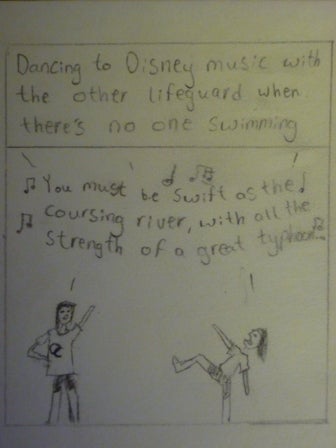 Dancing to Disney music with
the other lifeguard when
there's no one swimming
You must be swift as the
coursing river, with all the
strength of a great typhoon